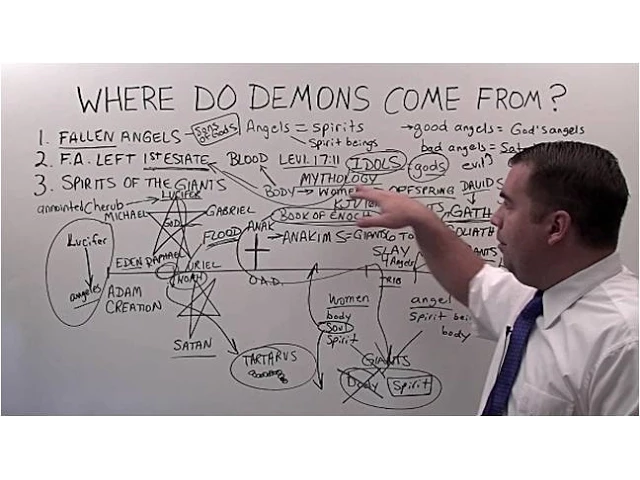 WHERE DO DEMONS COME FROM?
1. FALLEN ANGELS - Sons of Gods Angels = spirits → good angels = God's angels
Spirit beings bad angels =
2. F.A. LEFT 1st ESTATE BLOOD LEVI. 17:11 IDOLS gods evil?
MYTHOLOGY
3. SPIRITS OF THE GIANTS BODY → OFFSPRING DAVID
annointed Cherub → LUCIFER KJV GATH
MICHAEL GABRIEL BOOK OF ENOCH
GOD ANAK
Lucifer FLOOD → ANAKIMS = GIANTS
EDEN RAPHAEL URIEL SLAY
4 Angels
angels ADAM (NOAH) TRIB
CREATION Women angel
body
Soul
spirit body
SATAN TARTARUS GIANTS
Body Spirit